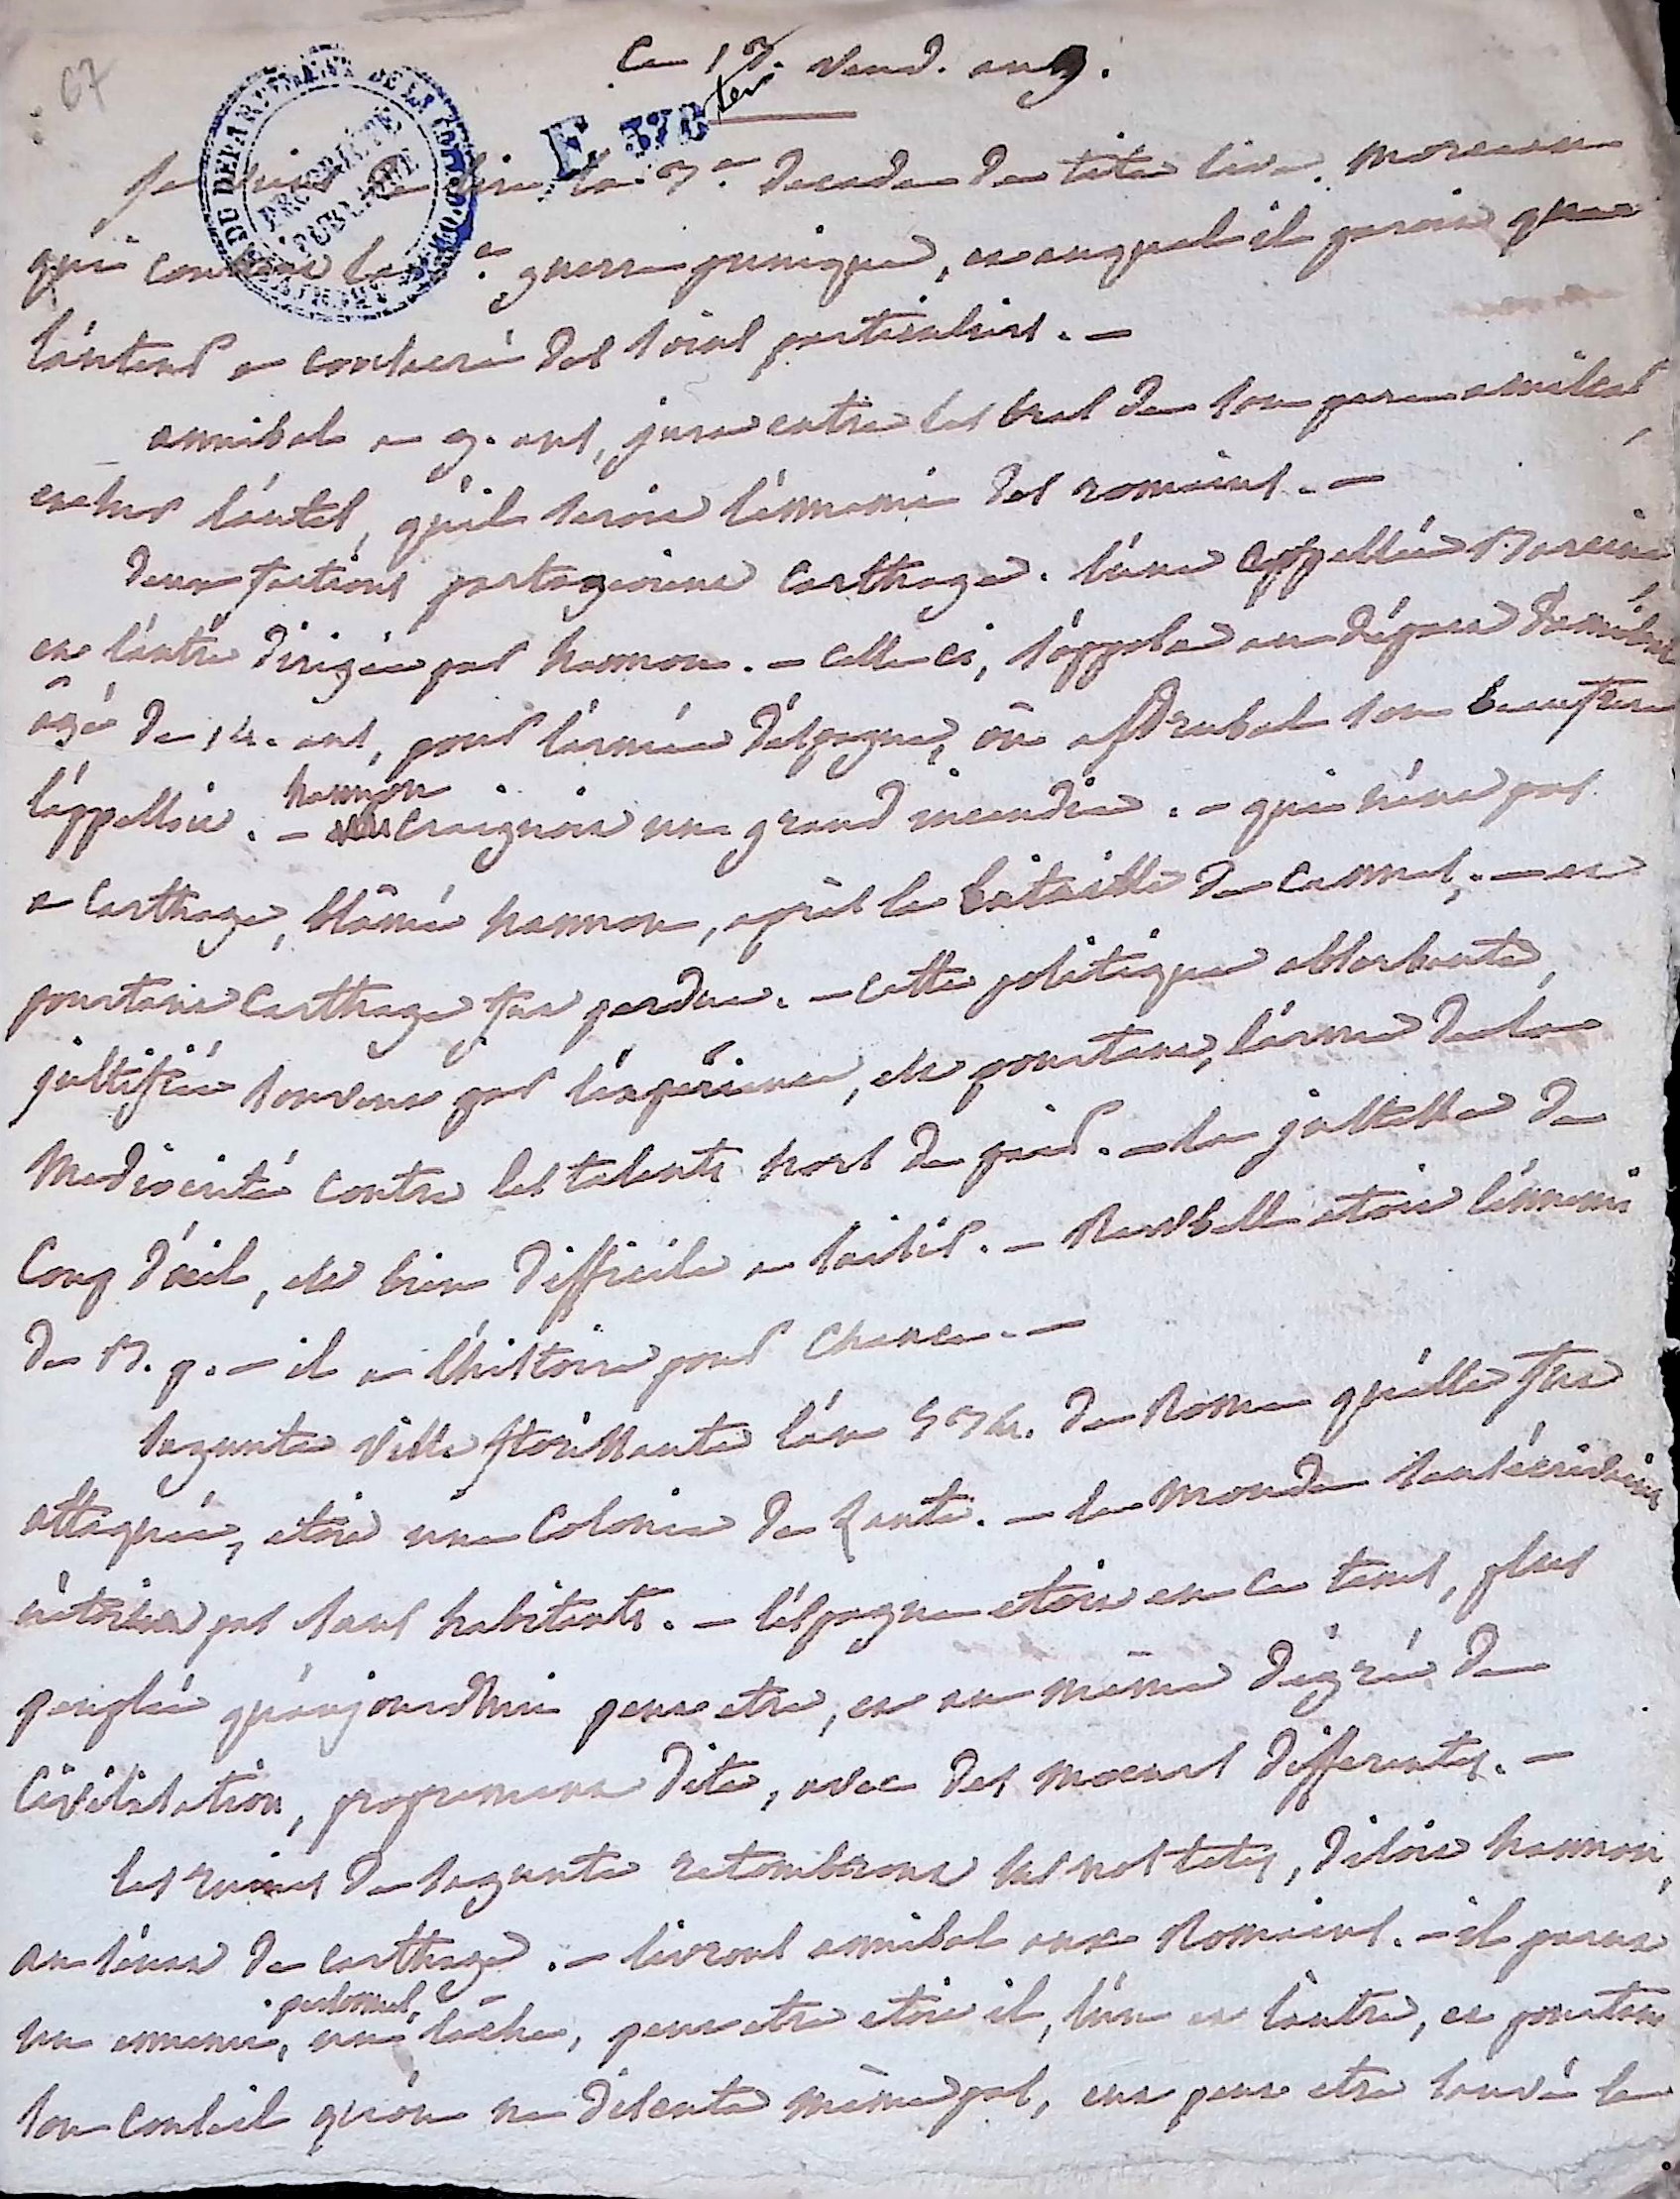 67
Ce 13. vend. an 9.
ARCHIVES DU DÉPARTEMENT DE LA CÔTE D'OR
PROPRIÉTÉ PUBLIQUE
E 378 ter
Je viens de lire la 3e. decade de tite live. morceau
qui contient la 2e guerre punique, et auquel il paroit que
l'auteur a consacré des soins particuliers. —
annibal a 9. ans, jura entre les bras de son pere amilcar
et sur l'autel, qu'il seroit l'ennemi des romains. —
deux factions partageoient Carthage. l'une appellée Barcine
et l'autre dirigée par hannon. — celle ci, s'opposa au départ d'annibal
âgé de 14. ans, pour l'armée d'espagne, où asdrubal son beaufrere
l'appelloit. — hannon craignoit un grand incendie. — qui n'eut pas
a Carthage, blâmé hannon, après la bataille de Cannes, — et
pourtant Carthage fut perdue. — cette politique absorbante,
justifiée souvent par l'expérience, est pourtant, l'arme de la
médiocrité contre les talents hors de pair. — la justesse de
Coup d'œil, est bien difficile a saisir. — Rewbell etoit l'ennemi
de B. p. — il a l'histoire pour chance. —
Sagunte ville florissante l'an 534. de Rome qu'elle fut
attaquée, etoit une Colonie de Zante. — le monde sans écrivains
n'étoit pas sans habitants. — l'espagne etoit en ce tems, plus
peuplée qu'aujourdhui peut etre, et au même dégré de
Civilisation, proprement dite, avec des moeurs differentes. —
les ruines de sagunte retomberont sur nos tetes, disoit hannon,
au sénat de carthage. — livrons annibal aux Romains. — il parut
un ennemi personnel, un lâche, peut etre etoit il, l'un et l'autre, et pourtant
son conseil qu'on ne discuta même pas, eut peut etre sauvé la